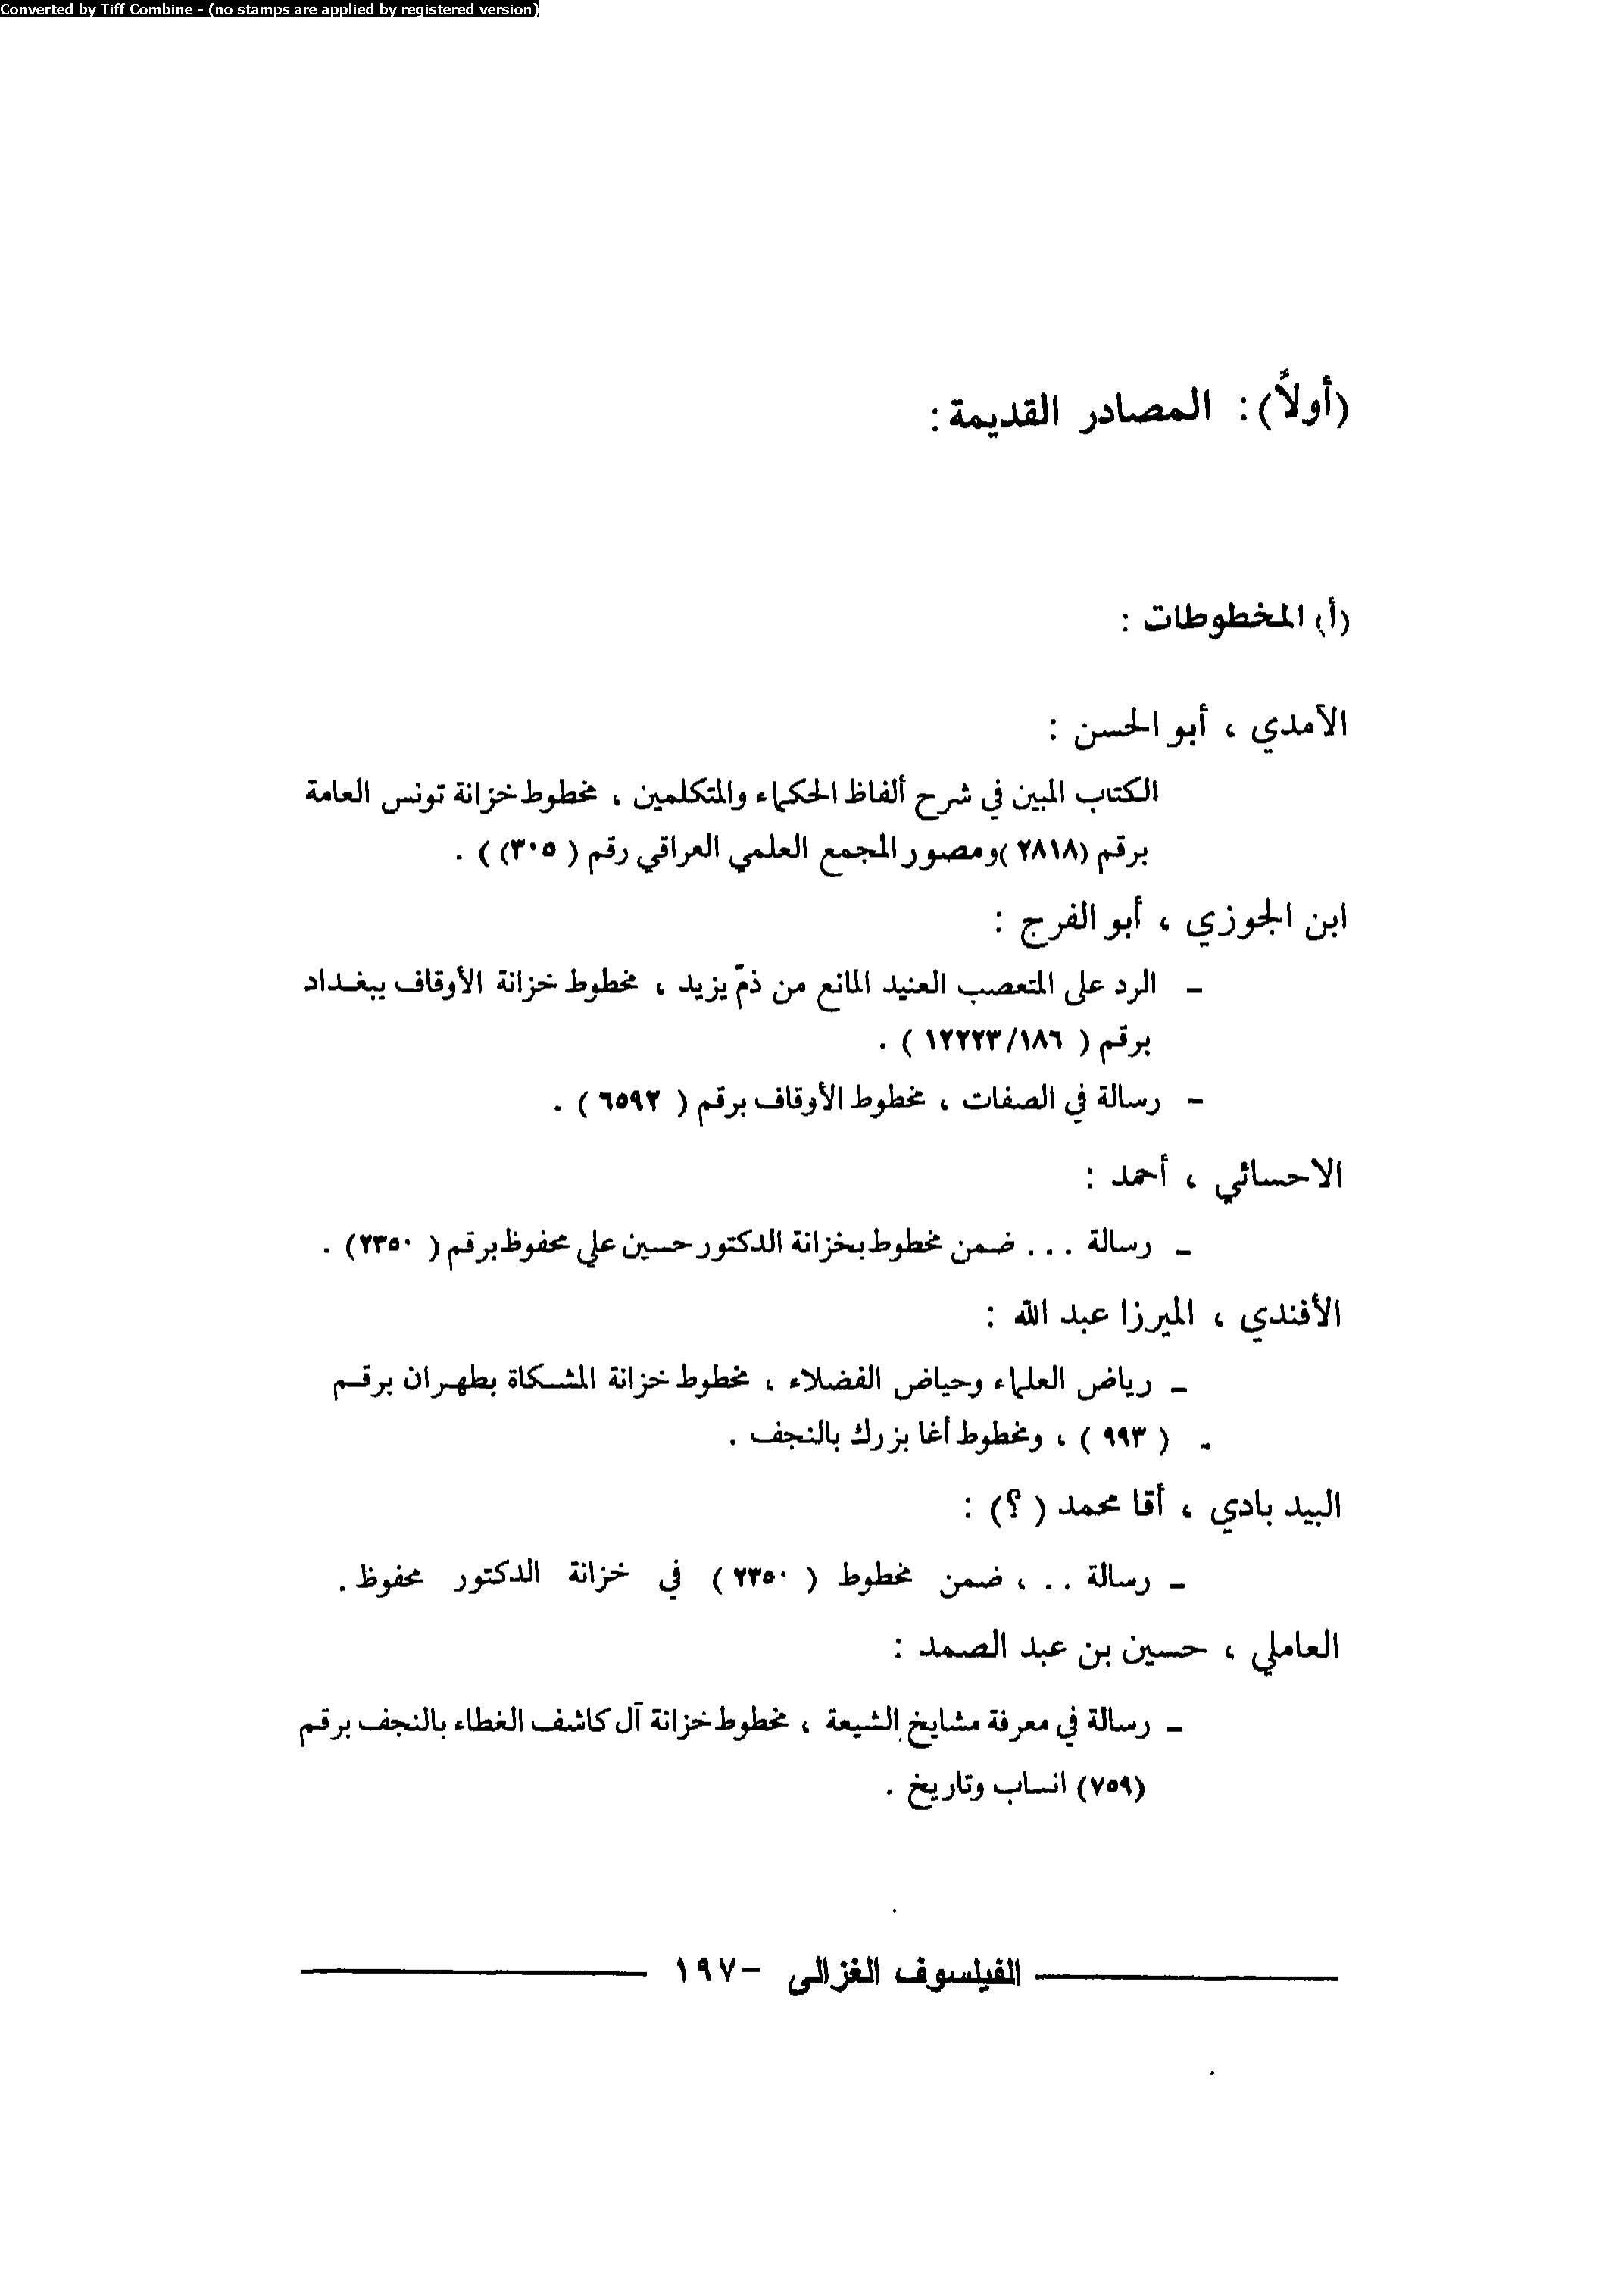 Converted by Tiff Combine - (no stamps are applied by registered version)
(أولاً): المصادر القديمة:
(أ) المخطوطات :
الآمدي ، أبو الحسن :
الكتاب المبين في شرح ألفاظ الحكماء والمتكلمين ، مخطوط خزانة تونس العامة
برقم (٢٨١٨)ومصور المجمع العلمي العراقي رقم ( ٣٠٥) ) .
ابن الجوزي ، أبو الفرج :
– الرد على المتعصب العنيد المانع من ذمّ يزيد ، مخطوط خزانة الأوقاف ببغداد
برقم ( ١٢٢٢٣/١٨٦ ) .
– رسالة في الصفات ، مخطوط الأوقاف برقم ( ٦٥٩٢ ) .
الاحسائي ، أحمد :
– رسالة . . . ضمن مخطوط بخزانة الدكتور حسين علي محفوظ برقم ( ٢٣٥٠) .
الأفندي ، الميرزا عبد الله :
– رياض العلماء وحياض الفضلاء ، مخطوط خزانة المشكاة بطهران برقم
( ٩٩٣ ) ، ومخطوط أغا بزرك بالنجف .
البيد بادي ، أقا محمد ( ؟) :
– رسالة . . ، ضمن مخطوط ( ٢٣٥٠ ) في خزانة الدكتور محفوظ .
العاملي ، حسين بن عبد الصمد :
– رسالة في معرفة مشايخ الشيعة ، مخطوط خزانة آل كاشف الغطاء بالنجف برقم
(٧٥٩) انساب وتاريخ .
الفيلسوف الغزالى -١٩٧